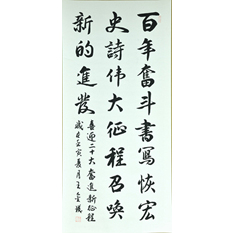 百年奮斗書寫恢宏
史詩伟大征程召喚
新的進發
喜迎二十大奮進新征程
歲在壬寅夏月王